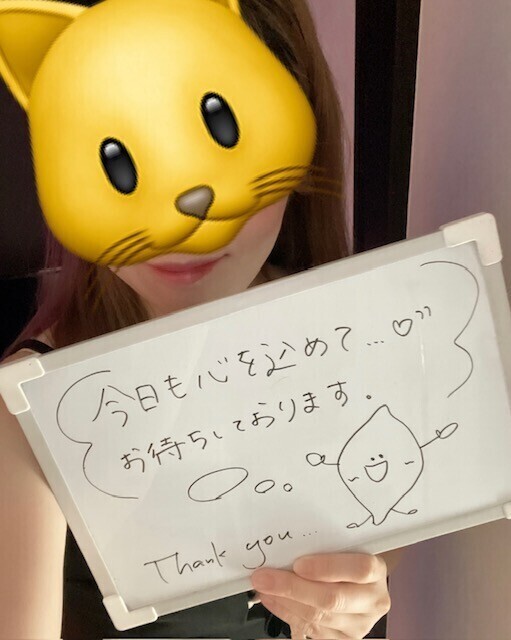 今日も心を込めて...♡
お待ちしております。
Thank you...